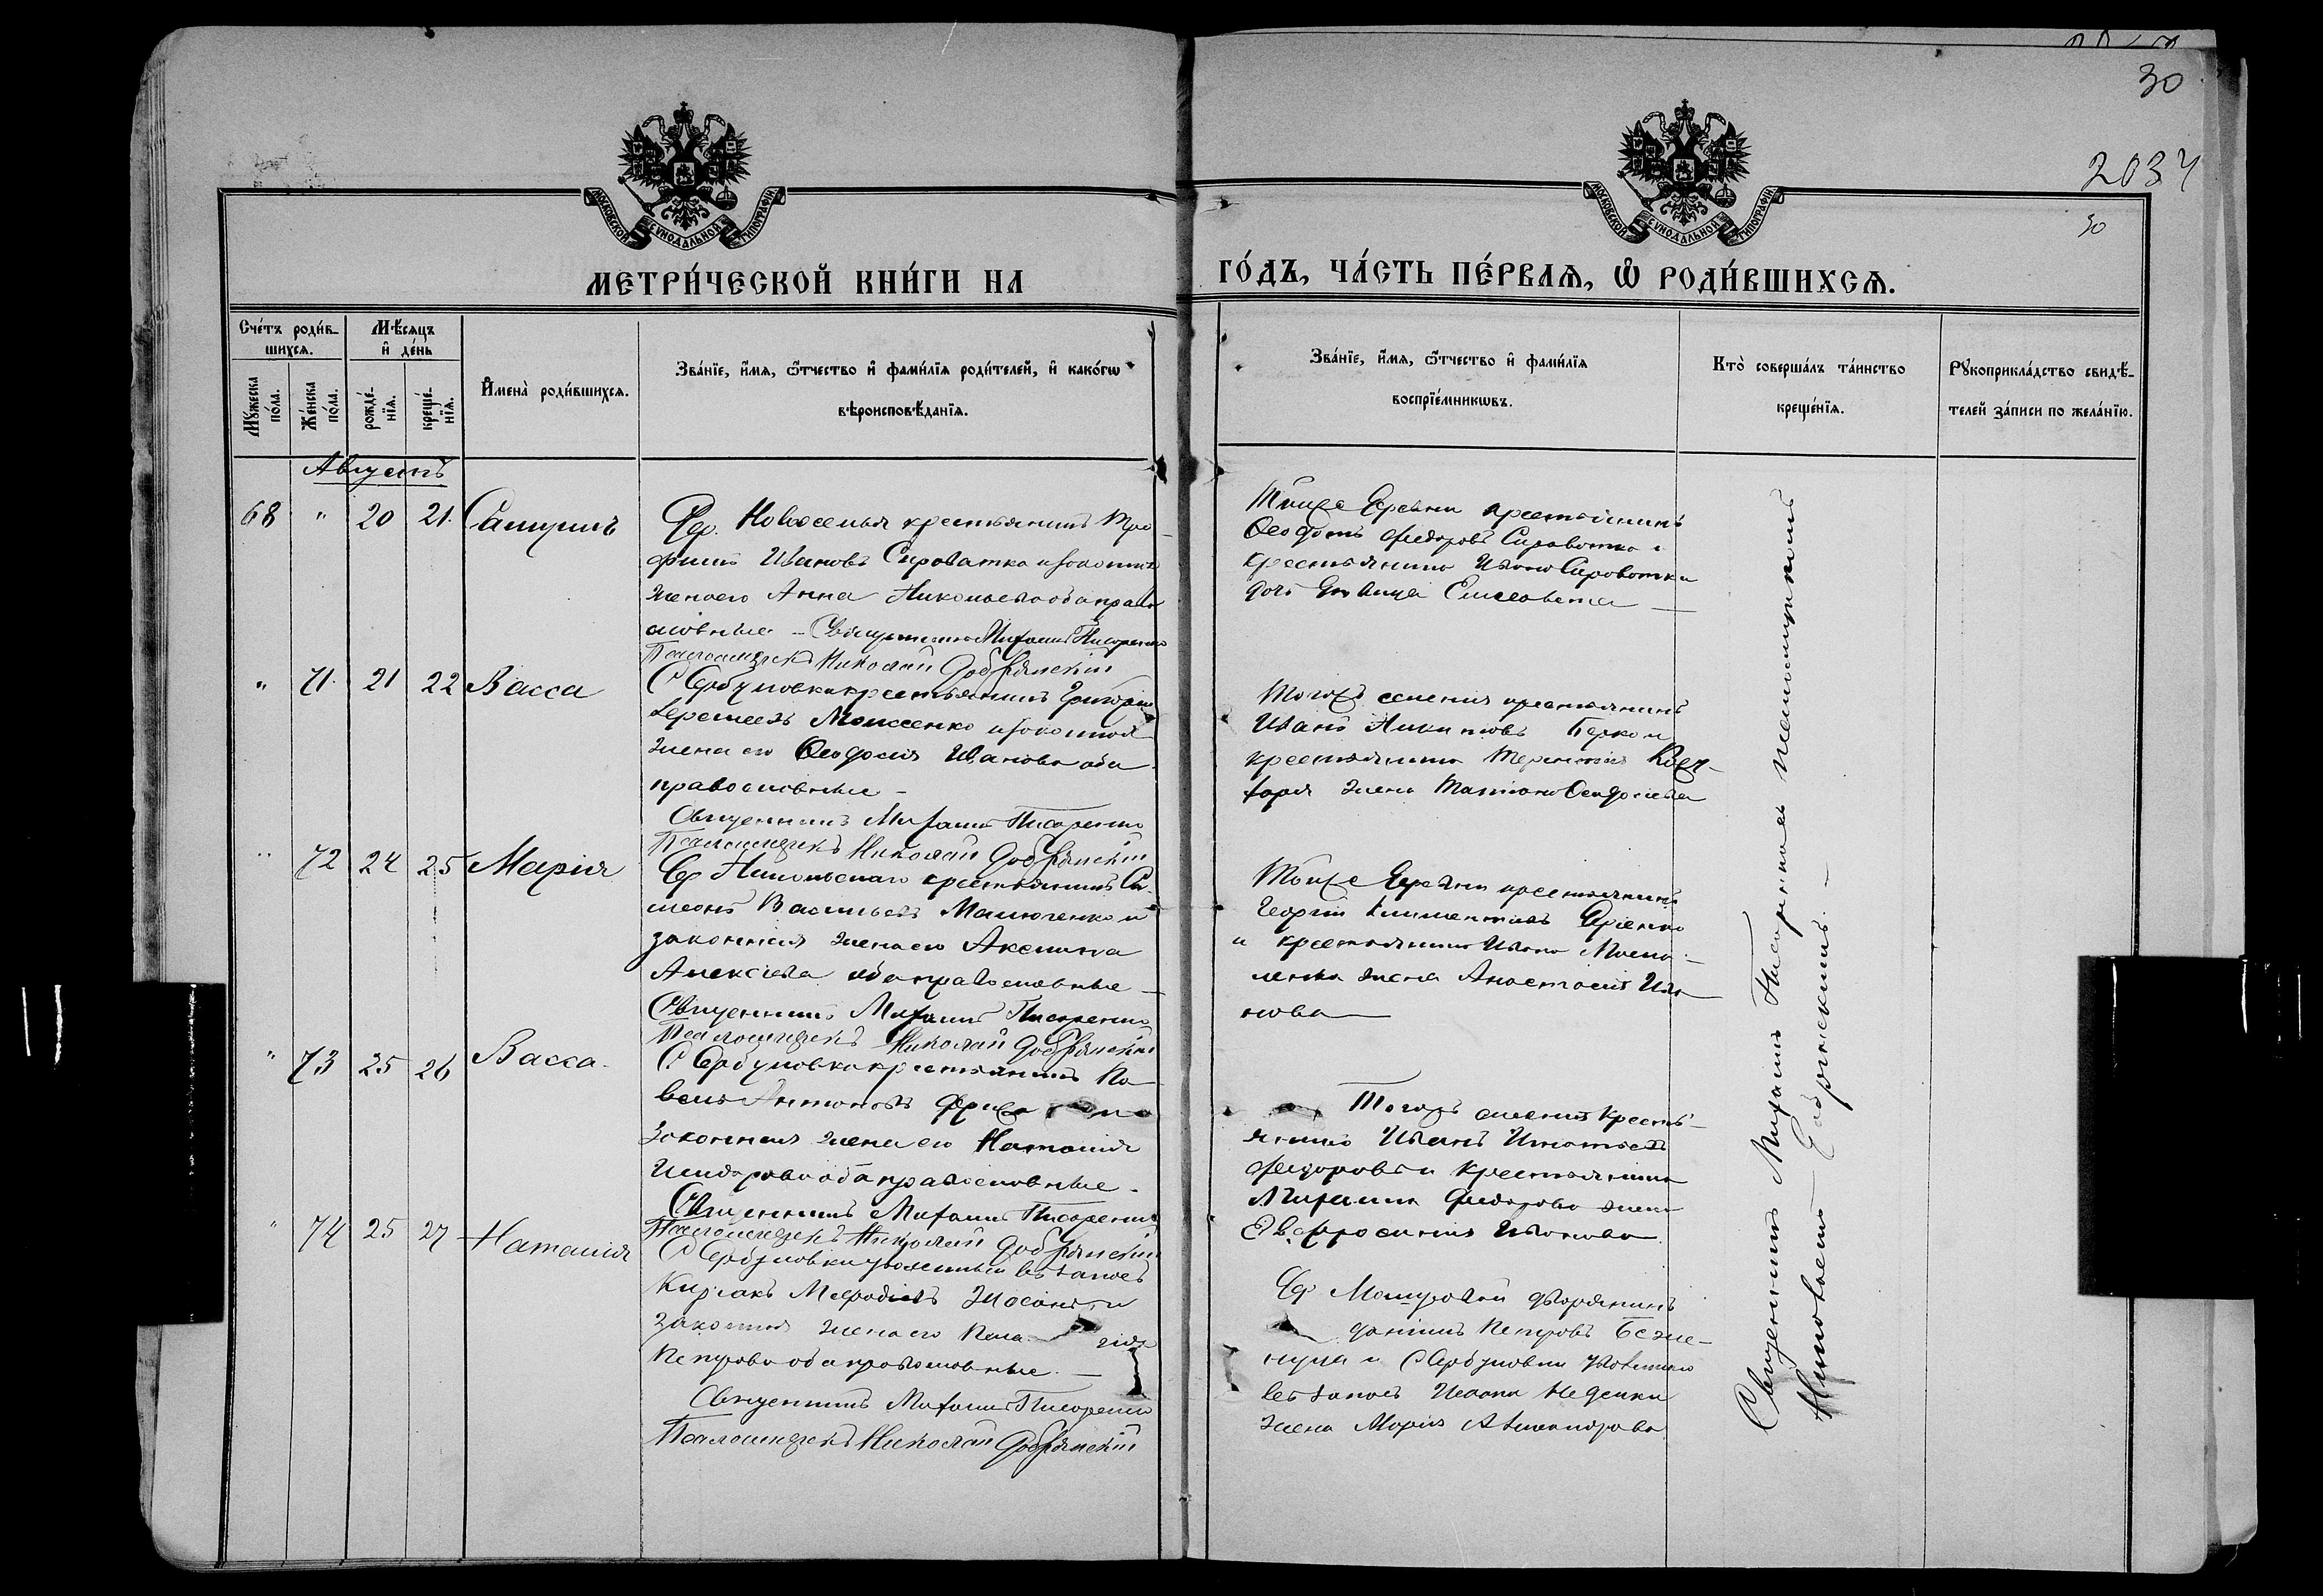 30
2034
30
МОСКОВСКОЙ СѴНОДАЛЬНОЙ ТИПОГРАФІИ
МОСКОВСКОЙ СѴНОДАЛЬНОЙ ТИПОГРАФІИ
МЕТРИ́ЧЕСКОЙ КНИ́ГИ НА
ГО́ДЪ, ЧА́СТЬ ПЕ́РВАѦ, Ѡ҆ РОДИ́ВШИХСѦ.
Сче́тъ роди́в-
шихсѧ.
Мꙋ́жеска
по́ла.
Же́нска
по́ла.
Мѣ́сѧцъ
и҆ де́нь
рожде́-
нїѧ.
креще́-
нїѧ.
И҆мена̀ роди́вшихсѧ.
Зва́нїе, и҆́мѧ, ѻ҆́тчество и҆ фами́лїѧ роди́телей, и҆ како́гѡ
вѣроисповѣ́данїѧ.
Зва́нїе, и҆́мѧ, ѻ҆́тчество и҆ фами́лїѧ
воспрїе́мникѡвъ.
Кто̀ соверша́лъ та́инство
креще́нїѧ.
Рꙋкоприкла́дство свидѣ́-
телей за́писи по жела́нїю.
Августъ
68 " 20 21 Самуилъ
Дер. Новоселья крестьянинъ Тро-
фимъ Ивановъ Сироватка и законная
жена его Анна Николаева оба право
славные – Священникъ Михаилъ Писаренко
Псаломщикъ Николай Добрянскій
Тойже деревни крестьянинъ
Ѳеодотъ Федоровъ Сироватка и
крестьянина Ивана Сироватки
дочь девица Елисавета
" 71 21 22 Васса
С Сербуловка крестьянинъ Григорій
Еремеевъ Моисеенко и законная
жена его Ѳеодосія Иванова оба
православные –
Священникъ Михаилъ Писаренко
Псаломщикъ Николай Добрянскій
Тогожъ селенія крестьянинъ
Иванъ Никитовъ и
крестьянина Терентія
жена Татіана Ѳеодосіева
" 72 24 25 Марія
Дер Никольскаго крестьянинъ Си-
меонъ Васильевъ Малюченко и
законная жена его Аксинія
Алексіева оба православные –
Священникъ Михаилъ Писаренко
Псаломщикъ Николай Добрянскій
Тойже деревни крестьянинъ
Георгій Климентіевъ
и крестьянина Ивана
жена Анастасія Ива-
нова
" 73 25 26 Васса.
С Сербуловка крестьянинъ Па-
велъ Антоновъ
законная жена его Наталія
Исидорова оба православные –
Священникъ Михаилъ Писаренко
Псаломщикъ Николай Добрянскій
Тогожъ селенія кресть-
янинъ Иванъ Игнатьевъ
Федоровъ и крестьянина
Михаила Федорова жена
Евфросинія Иванова
" 74 25 27 Наталія
С Сербуловки уволенный въ запасъ
Киріакъ Меѳодіевъ и
законная жена его
Петрова оба православные. –
Священникъ Михаилъ Писаренко
Псаломщикъ Николай Добрянскій
дворянинъ
Даніилъ Петровъ
и С Сербуловки уволеннаго
въ запасъ
жена Марія Александрова
Священникъ Михаилъ Писаренко съ псаломщикомъ
Николаемъ Добрянскимъ. –